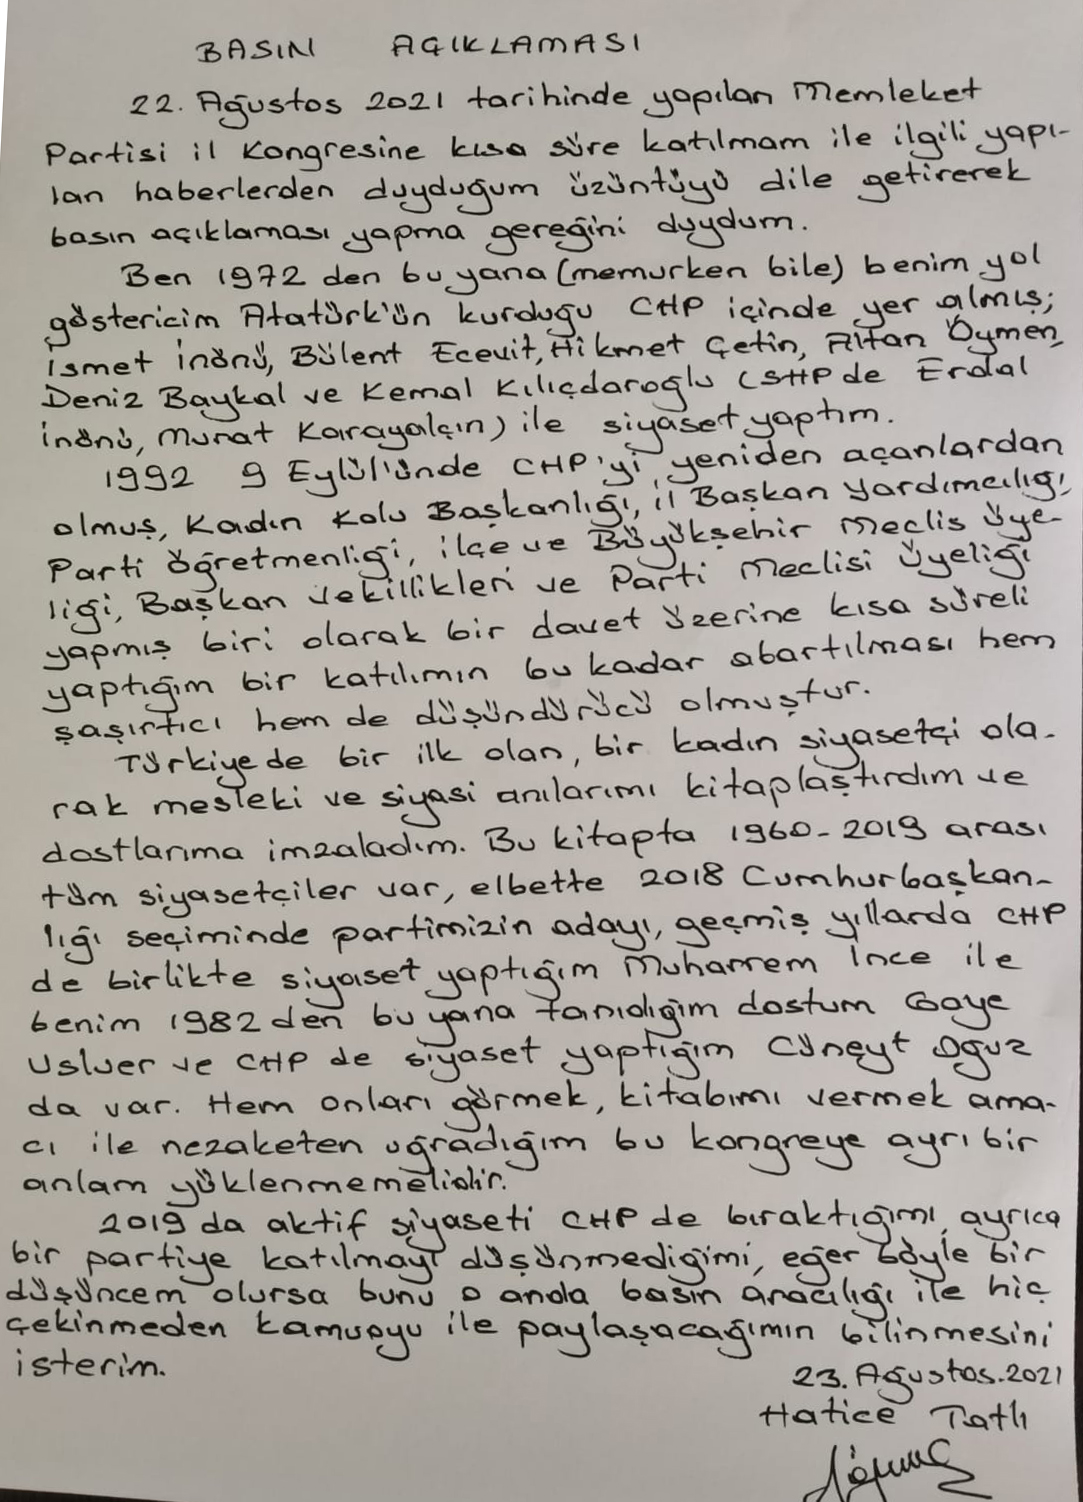 BASIN AÇIKLAMASI
22. Ağustos 2021 tarihinde yapılan Memleket
Partisi il Kongresine kısa süre katılmam ile ilgili yapı-
lan haberlerden duyduğum üzüntüyü dile getirerek
basın açıklaması yapma gereğini duydum.
Ben 1972 den bu yana (memurken bile) benim yol
göstericim Atatürk'ün kurduğu CHP içinde yer almış;
İsmet İnönü, Bülent Ecevit, Hikmet Çetin, Altan Öymen,
Deniz Baykal ve Kemal Kılıçdaroğlu (SHP de Erdal
İnönü, Murat Karayalçın) ile siyaset yaptım.
1992 9 Eylül'ünde CHP'yi yeniden açanlardan
olmuş, Kadın Kolu Başkanlığı, il Başkan Yardımcılığı,
Parti Öğretmenliği, ilçe ve Büyükşehir Meclis Üye-
liği, Başkan Vekillikleri ve Parti Meclisi Üyeliği
yapmış biri olarak bir davet üzerine kısa süreli
yaptığım bir katılımın bu kadar abartılması hem
şaşırtıcı hem de düşündürücü olmuştur.
Türkiye de bir ilk olan, bir kadın siyasetçi ola-
rak mesleki ve siyasi anılarımı kitaplaştırdım ve
dostlarıma imzaladım. Bu kitapta 1960-2019 arası
tüm siyasetçiler var, elbette 2018 Cumhurbaşkan-
lığı seçiminde partimizin adayı, geçmiş yıllarda CHP
de birlikte siyaset yaptığım Muharrem İnce ile
benim 1982 den bu yana tanıdığım dostum Gaye
Usluer ve CHP de siyaset yaptığım Cüneyt Oğuz
da var. Hem onları görmek, kitabımı vermek ama-
cı ile nezaketen uğradığım bu kongreye ayrı bir
anlam yüklenmemelidir.
2019 da aktif siyaseti CHP de bıraktığımı, ayrıca
bir partiye katılmayı düşünmediğimi, eğer böyle bir
düşüncem olursa bunu o anda basın aracılığı ile hiç
çekinmeden kamuoyu ile paylaşacağımın bilinmesini
isterim.
23. Ağustos.2021
Hatice Tatlı